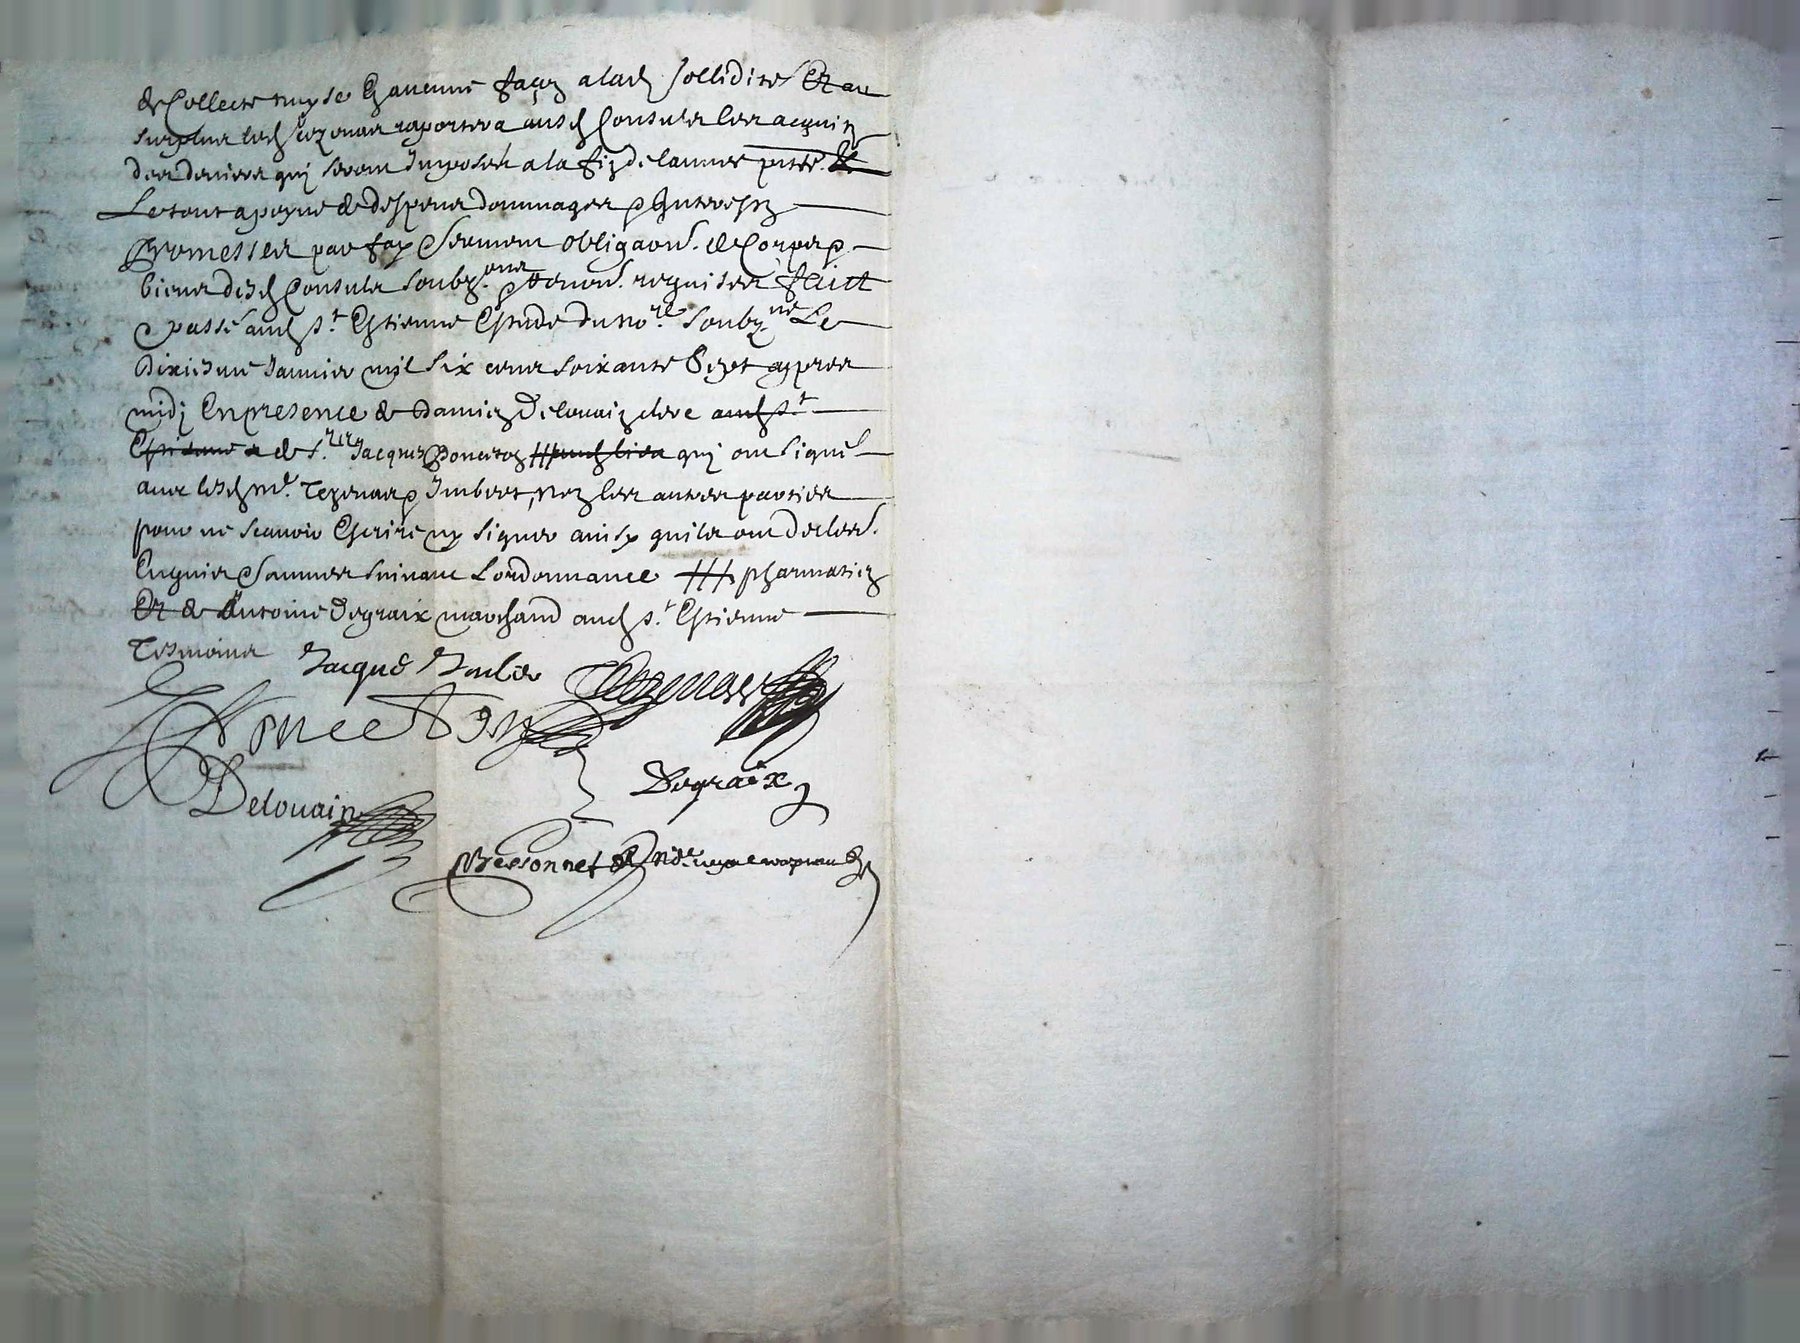 de Collecte ny se En aucune façon a lad sollidité Et au
surplus led Tezenas raportera ausd Consuls les acquitz
des deniers qui seront Imposés a la fin de lannee pnte. &
Le tout a peyne de despens dommages & Interestz
Promesses par foy & serment obligaons. de Corps &
biens desd Consuls soubz. ons & renons. requises faict
& passé aud st Estienne Estude du nore. soubzne Le
Dixiesme Janvier mil six cens soixante sept appres
midj En presence de Damien Delouain clerc aud st
Estienne & de sr. Jacques Ponceton /// qui ont signé
avec lesd Me. Tezenas & Imbert, non les autres parties
pour ne scavoir Escrire ny signer ainsy quils ont declare.
Enquis & sommes suivant Lordonnance /// pharmatien
Et de Antoine Degraix marchand aud st. Estienne
Tesmoins Jacque Imber Tezenas
Ponceton
Degraix
Delouain
Bessonnet